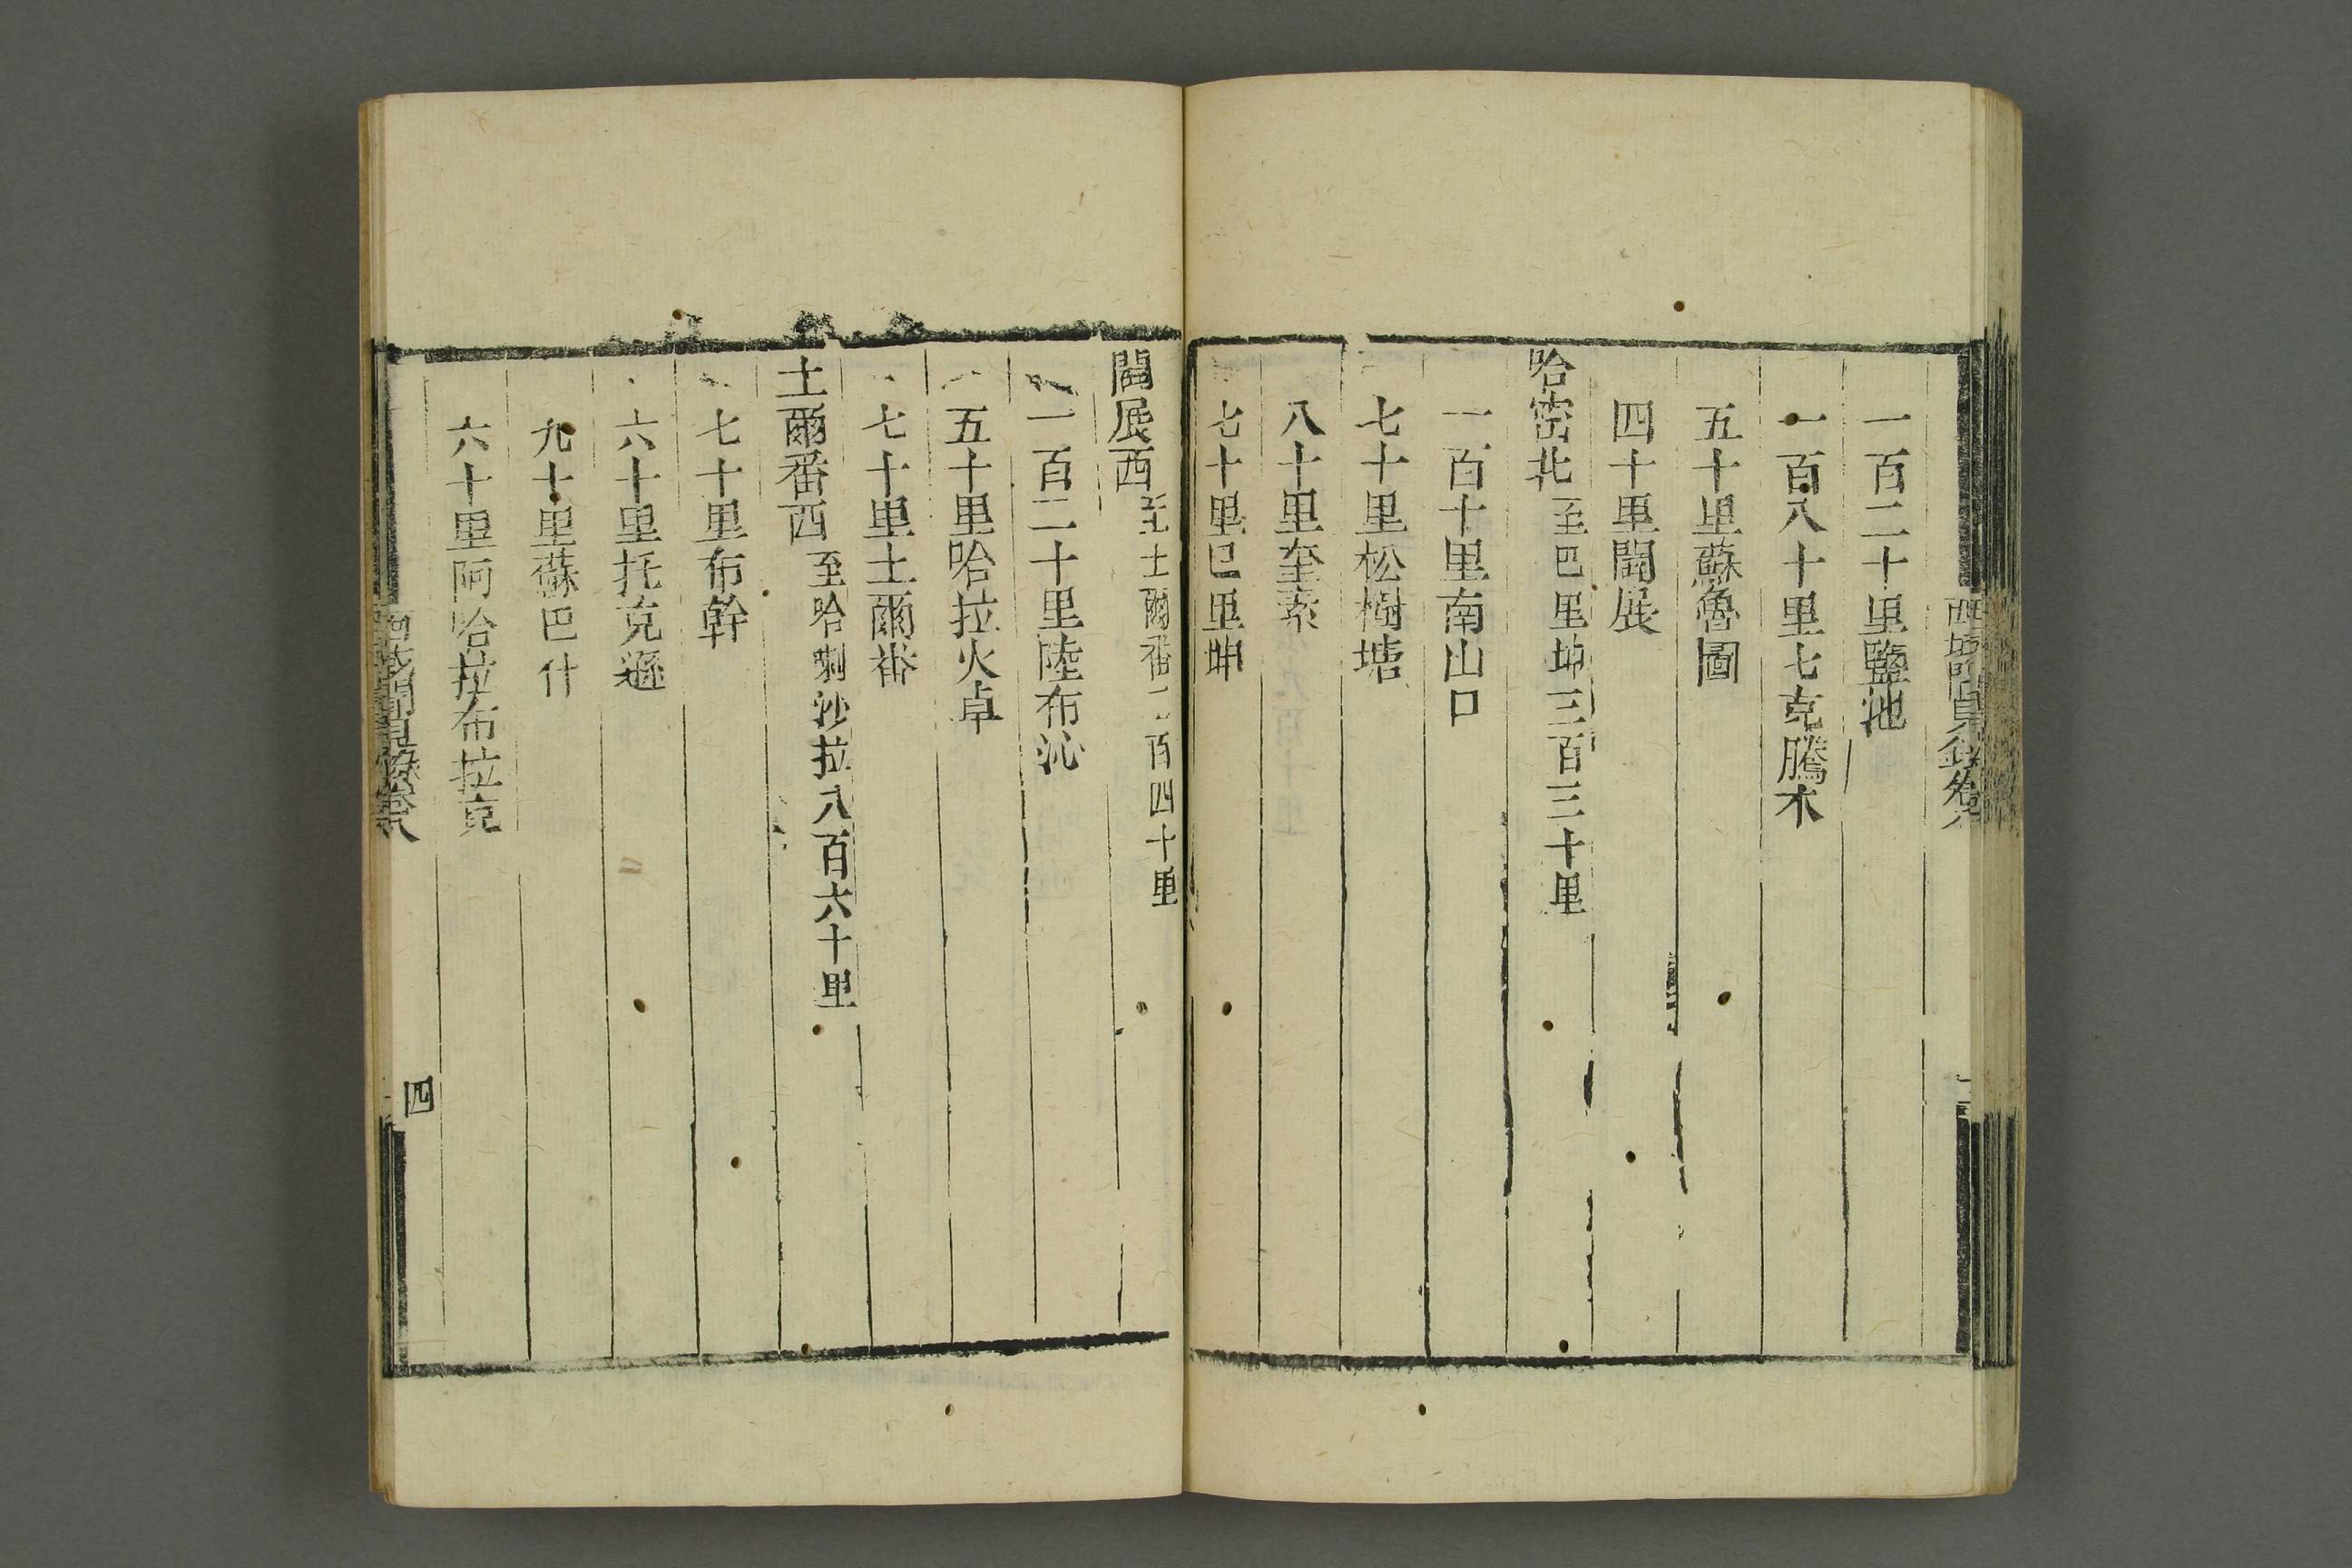 西域聞見錄卷八
一百二十里鹽池
一百八十里七克騰木
五十里蘇魯圖
四十里闢展
哈密北至巴里坤三百三十里
一百十里南山口
七十里松樹塘
八十里奎素
七十里巴里坤
闢展西至土爾番二百四十里
一百二十里陸布沁
五十里哈拉火卓
七十里土爾番
土爾番西至哈喇沙拉八百六十里
七十里布幹
六十里托克遜
九十里蘇巴什
六十里阿哈拉布拉克
西域聞見錄卷八
四